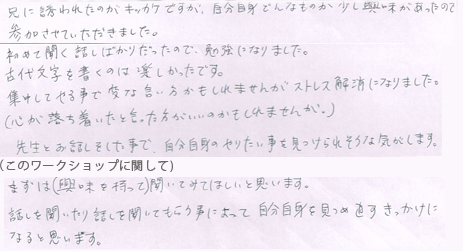 兄に誘われたのがキッカケですが、自分自身どんなものか少し興味があったので
参加させていただきました。
初めて聞く話しばかりだったので、勉強になりました。
古代文字を書くのは楽しかったです。
集中してやる事で変な言い方かもしれませんがストレス解消になりました。
(心が落ち着いたと言った方がいいのかもしれませんが。)
先生とお話しました事で、自分自身のやりたい事を見つけられそうな気がします。
(このワークショップに関して)
まずは(興味を持って)聞いてみてほしいと思います。
話しを聞いたり話しを聞いてもらう事によって自分自身を見つめ直すきっかけに
なると思います。